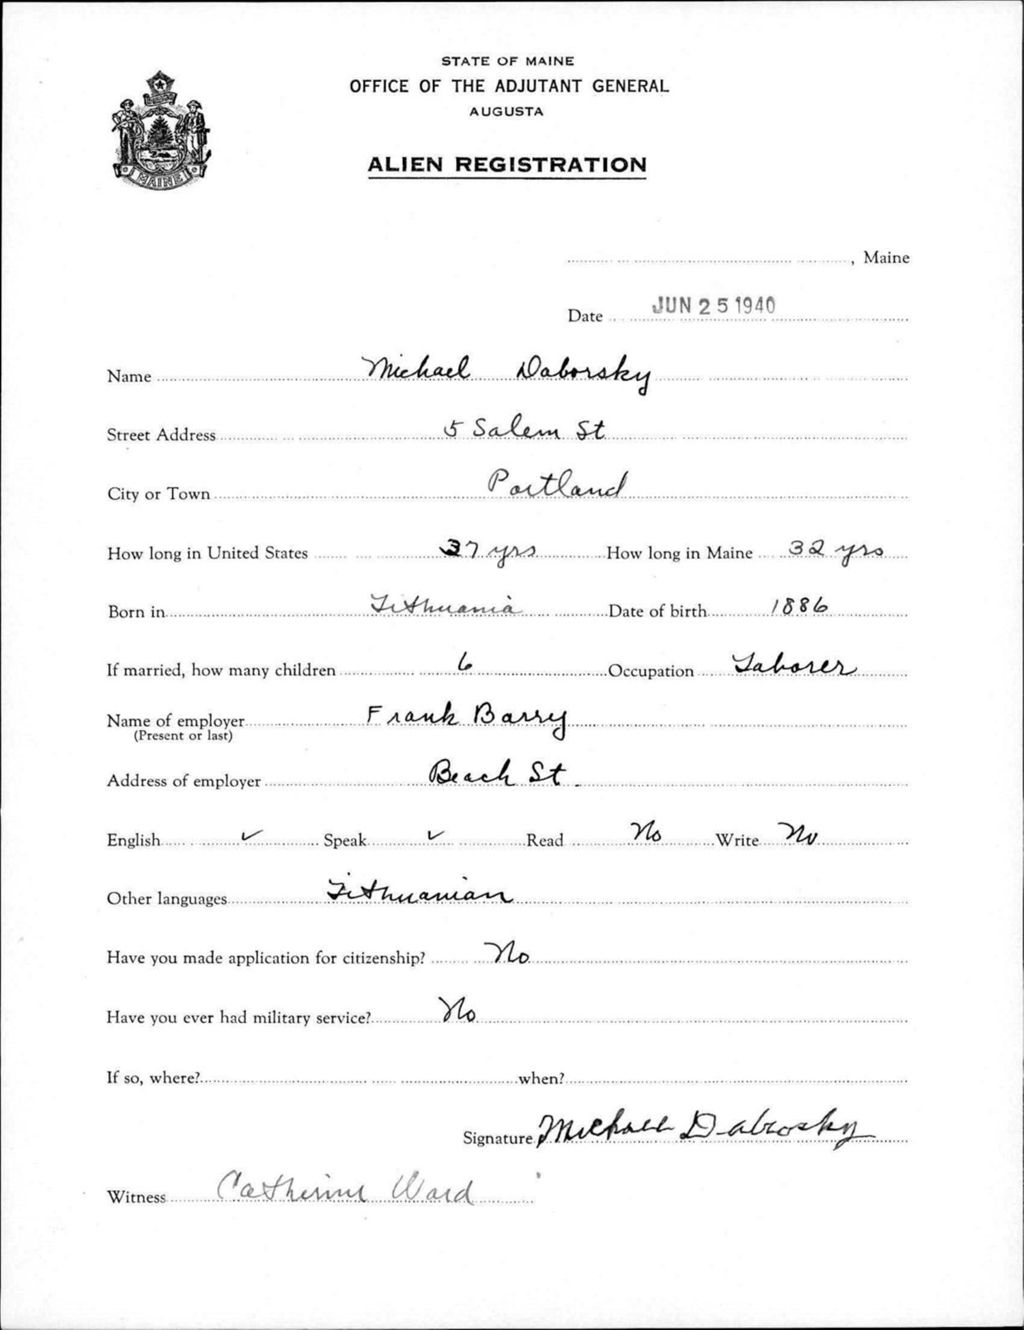 STATE OF MAINE
OFFICE OF THE ADJUTANT GENERAL
AUGUSTA
ALIEN REGISTRATION
MAINE
, Maine
Date JUN 25 1940
Name Michael Daborsky
Street Address 5 Salem St
City or Town Portland
How long in United States 37 yrs How long in Maine 32 yrs
Born in Lithuania Date of birth 1886
If married, how many children 6 Occupation Laborer
Name of employer Frank Barry
(Present or last)
Address of employer Beach St.
English ✓ Speak ✓ Read No Write No
Other languages Lithuanian
Have you made application for citizenship? No
Have you ever had military service? No
If so, where? when?
Signature Michael Dabrosky
Witness Catherine Ward